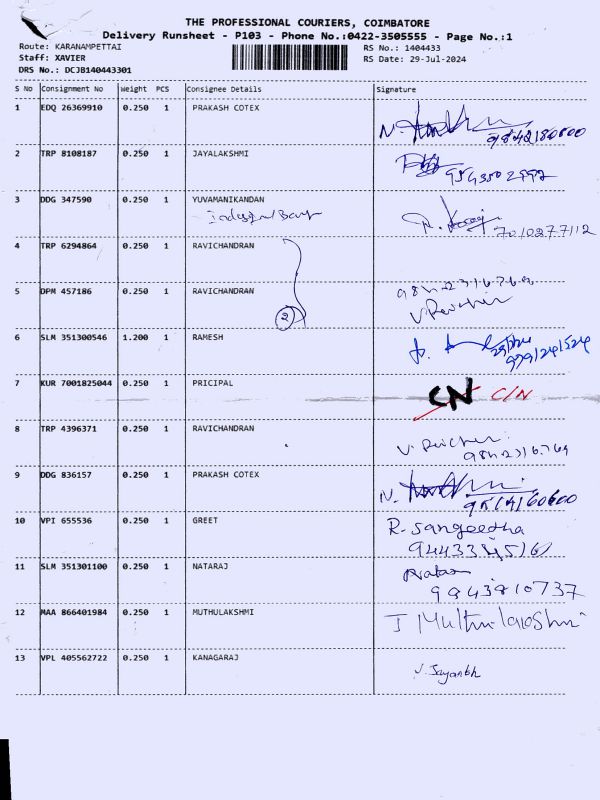 THE PROFESSIONAL COURIERS, COIMBATORE
Delivery Runsheet - P103 - Phone No.:0422-3505555 - Page No.:1
Route: KARANAMPETTAI RS No.: 1404433
Staff: XAVIER RS Date: 29-Jul-2024
DRS No.: DCJB140443301
S No Consignment No Weight PCS Consignee Details Signature
1 EDQ 26369910 0.250 1 PRAKASH COTEX
2 TRP 8108187 0.250 1 JAYALAKSHMI
3 DDG 347590 0.250 1 YUVAMANIKANDAN
7010277112
4 TRP 6294864 0.250 1 RAVICHANDRAN
5 DPM 457186 0.250 1 RAVICHANDRAN
2
6 SLM 351300546 1.200 1 RAMESH
7 KUR 7001825044 0.250 1 PRICIPAL CN C/N
8 TRP 4396371 0.250 1 RAVICHANDRAN
9 DDG 836157 0.250 1 PRAKASH COTEX
10 VPI 655536 0.250 1 GREET R-sangeedha
11 SLM 351301100 0.250 1 NATARAJ
9843810737
12 MAA 866401984 0.250 1 MUTHULAKSHMI
13 VPL 405562722 0.250 1 KANAGARAJ